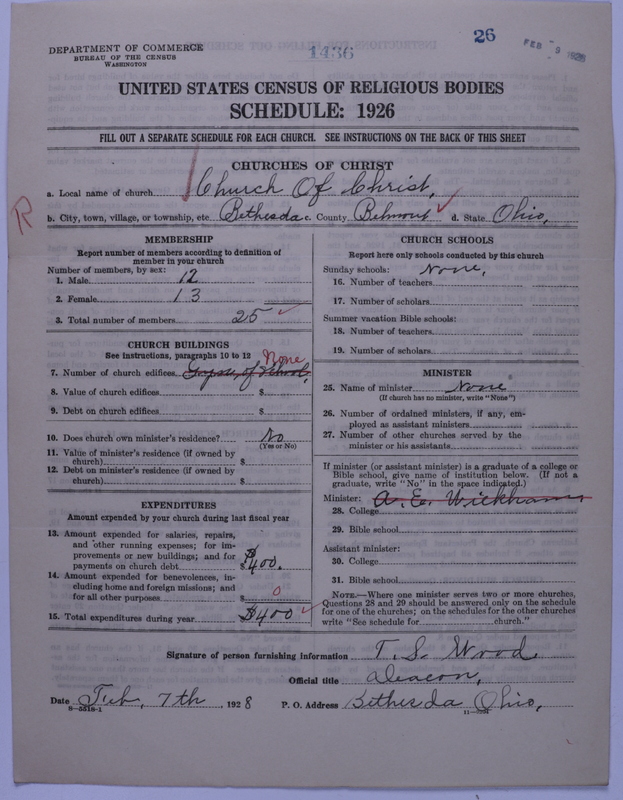 26
FEB 9 1928
1436
DEPARTMENT OF COMMERCE
BUREAU OF THE CENSUS
WASHINGTON
UNITED STATES CENSUS OF RELIGIOUS BODIES
SCHEDULE: 1926
FILL OUT A SEPARATE SCHEDULE FOR EACH CHURCH. SEE INSTRUCTIONS ON THE BACK OF THIS SHEET
CHURCHES OF CHRIST
a. Local name of church Church Of Christ,
R
b. City, town, village, or township, etc. Bethesda c. County Belmont d. State Ohio,
MEMBERSHIP
Report number of members according to definition of
member in your church
Number of members, by sex:
1. Male 12
2. Female 13
3. Total number of members 25
CHURCH BUILDINGS
See instructions, paragraphs 10 to 12
None
7. Number of church edifices of School,
8. Value of church edifices $
9. Debt on church edifices $
10. Does church own minister's residence? No
(Yes or No)
11. Value of minister's residence (if owned by
church) $
12. Debt on minister's residence (if owned by
church) $
EXPENDITURES
Amount expended by your church during last fiscal year
13. Amount expended for salaries, repairs,
and other running expenses; for im-
provements or new buildings; and for
payments on church debt $400.
14. Amount expended for benevolences, in-
cluding home and foreign missions; and
for all other purposes $ 0
15. Total expenditures during year $400
CHURCH SCHOOLS
Report here only schools conducted by this church
Sunday schools: None,
16. Number of teachers
17. Number of scholars
Summer vacation Bible schools:
18. Number of teachers
19. Number of scholars
MINISTER
25. Name of minister None
(If church has no minister, write "None")
26. Number of ordained ministers, if any, em-
ployed as assistant ministers
27. Number of other churches served by the
minister or his assistants
If minister (or assistant minister) is a graduate of a college or
Bible school, give name of institution below. (If not a
graduate, write "No" in the space indicated.)
Minister: A. E. Wickham
28. College
29. Bible school
Assistant minister:
30. College
31. Bible school
NOTE.—Where one minister serves two or more churches,
Questions 28 and 29 should be answered only on the schedule
for one of the churches; on the schedules for the other churches
write "See schedule for church."
Signature of person furnishing information T. S. Wood
Official title Deacon,
Date Feb, 7th 1928 P. O. Address Bethesda Ohio,
8-5518-1